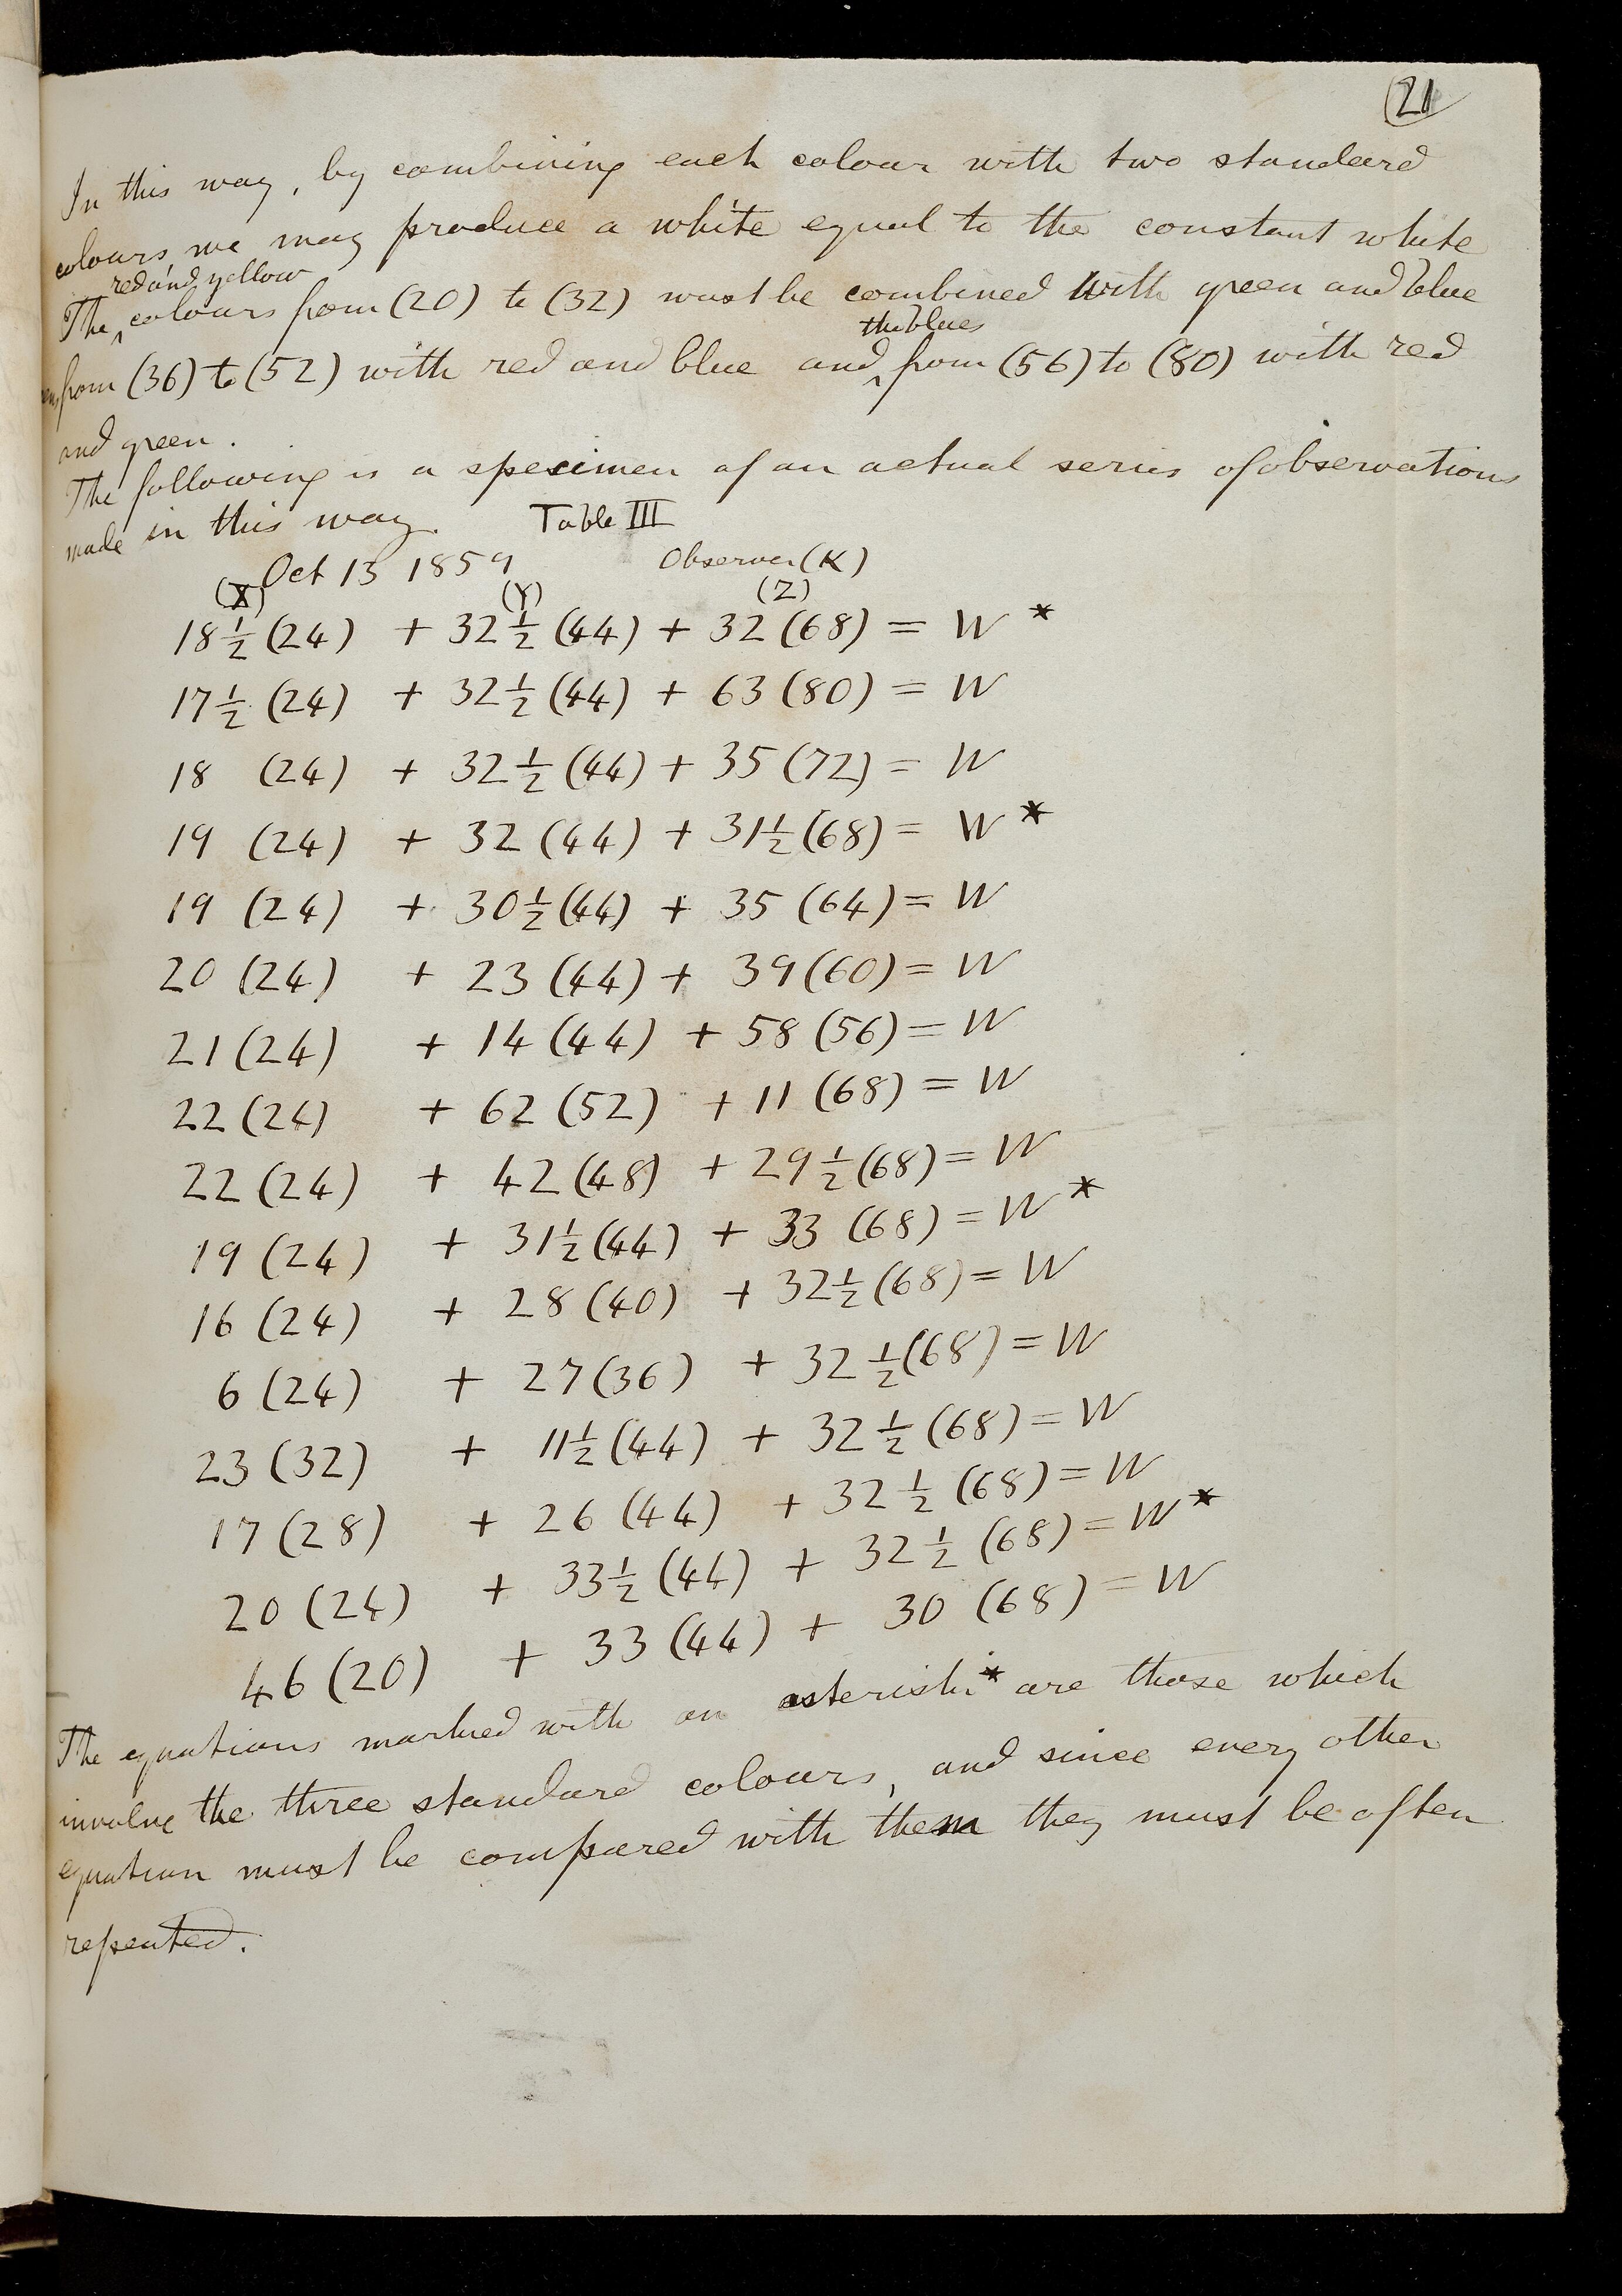 21
In this way, by combining each colour with two standard
colours, we may produce a white equal to the constant white
red and yellow
The ‸ colours from (20) to (32) must be combined with green and blue
the blues
from (36) to (52) with red and blue and ‸ from (56) to (80) with red
and green.
The following is a specimen of an actual series of observations
made in this way. Table III
Oct 13 1859 Observer (K)
(X) (Y) (Z)
18 1/2 (24) + 32 1/2 (44) + 32 (68) = W *
17 1/2 (24) + 32 1/2 (44) + 63 (80) = W
18 (24) + 32 1/2 (44) + 35 (72) = W
19 (24) + 32 (44) + 31 1/2 (68) = W *
19 (24) + 30 1/2 (44) + 35 (64) = W
20 (24) + 23 (44) + 39 (60) = W
21 (24) + 14 (44) + 58 (56) = W
22 (24) + 62 (52) + 11 (68) = W
22 (24) + 42 (48) + 29 1/2 (68) = W
19 (24) + 31 1/2 (44) + 33 (68) = W *
16 (24) + 28 (40) + 32 1/2 (68) = W
6 (24) + 27 (36) + 32 1/2 (68) = W
23 (32) + 11 1/2 (44) + 32 1/2 (68) = W
17 (28) + 26 (44) + 32 1/2 (68) = W
20 (24) + 33 1/2 (44) + 32 1/2 (68) = W *
46 (20) + 33 (44) + 30 (68) = W
The equations marked with an asterisk * are those which
involve the three standard colours, and since every other
equation must be compared with them they must be often
repeated.